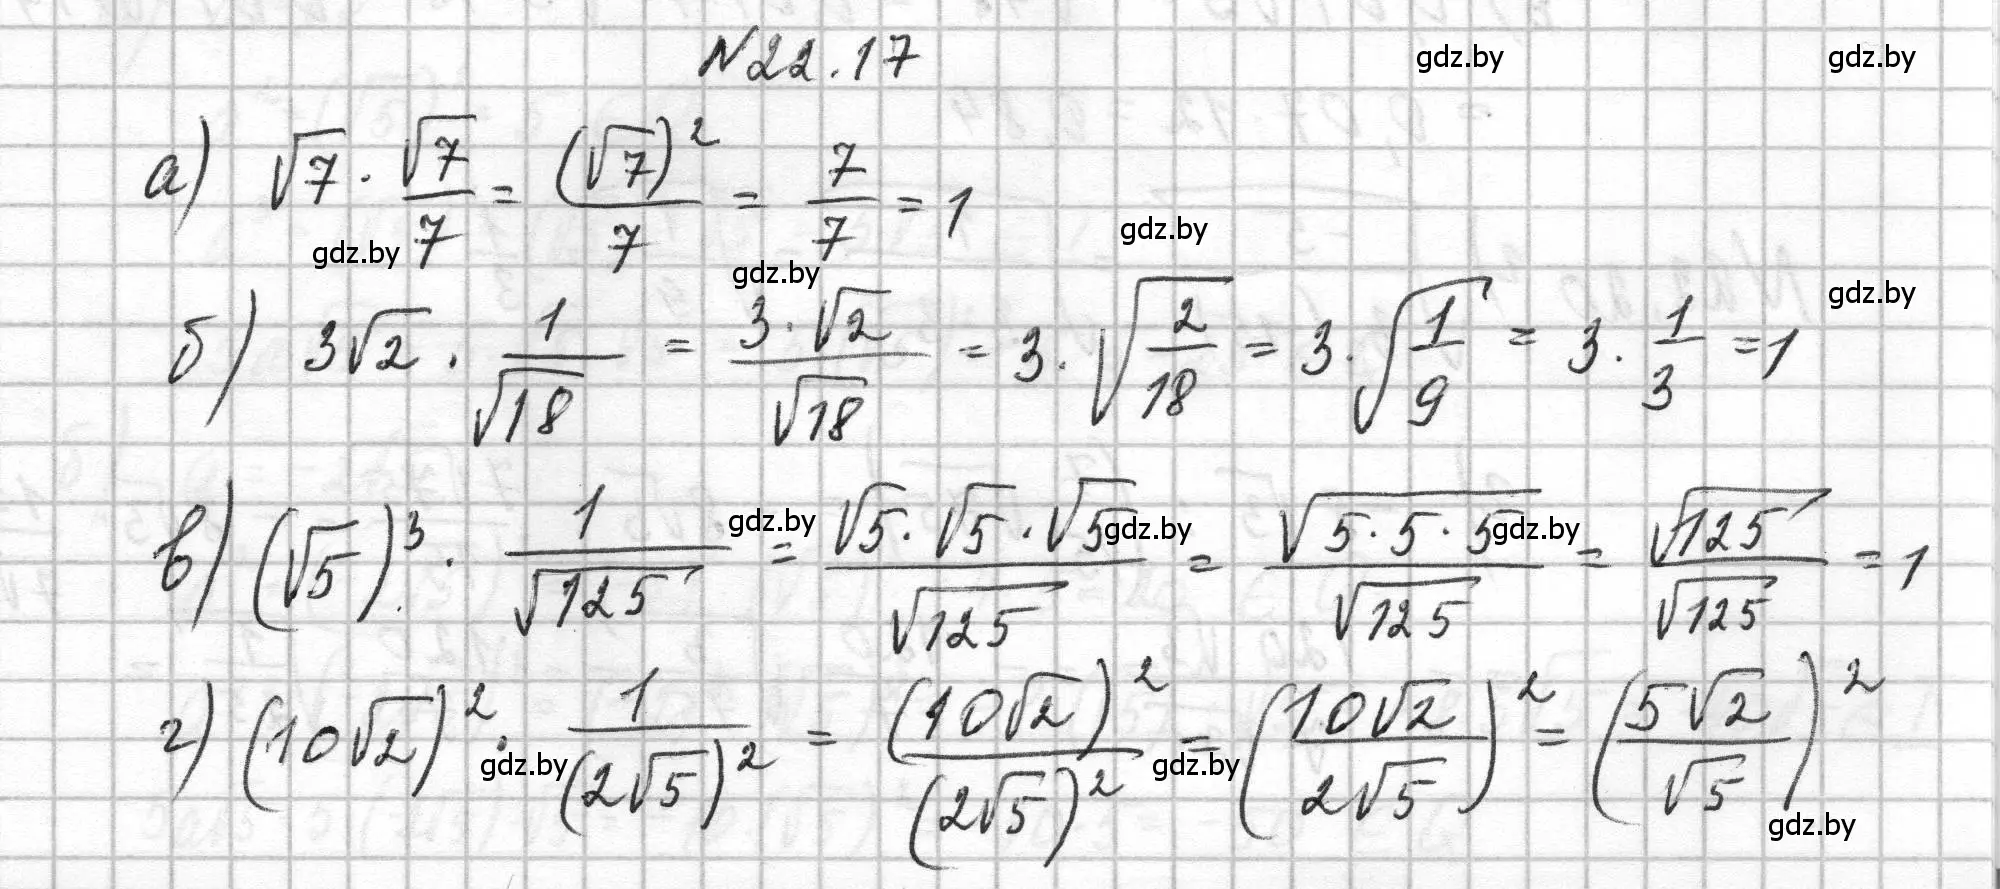 №22.17
gdz.by gdz.by
а) √7 · √7/7 = (√7)²/7 = 7/7 = 1
gdz.by gdz.by gdz.by
б) 3√2 · 1/√18 = 3·√2/√18 = 3·√(2/18) = 3·√(1/9) = 3·1/3 = 1
gdz.by
в) (√5)³ · 1/√125 = √5·√5·√5/√125 = √(5·5·5)/√125 = √125/√125 = 1
gdz.by gdz.by gdz.by
г) (10√2)² · 1/(2√5)² = (10√2)²/(2√5)² = (10√2/2√5)² = (5√2/√5)²
gdz.by gdz.by gdz.by